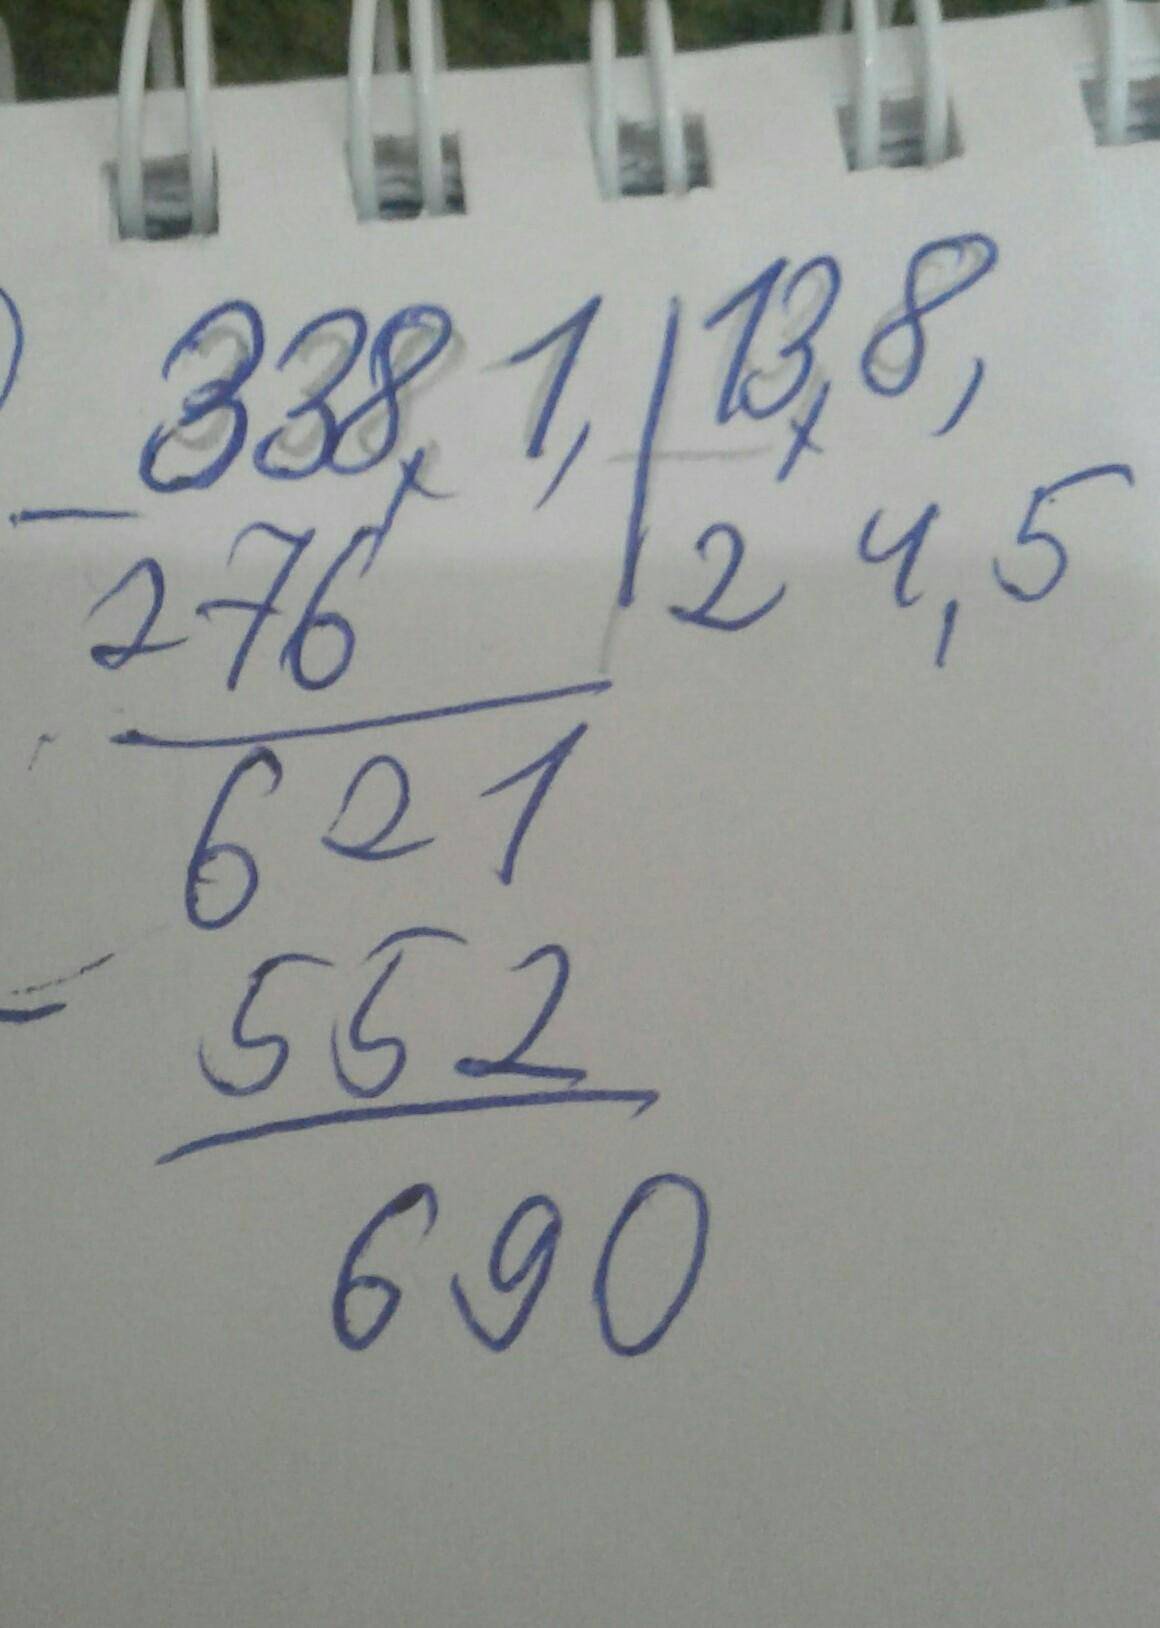 338,1, | 13,8,
- 276 | 24,5
621
- 552
690